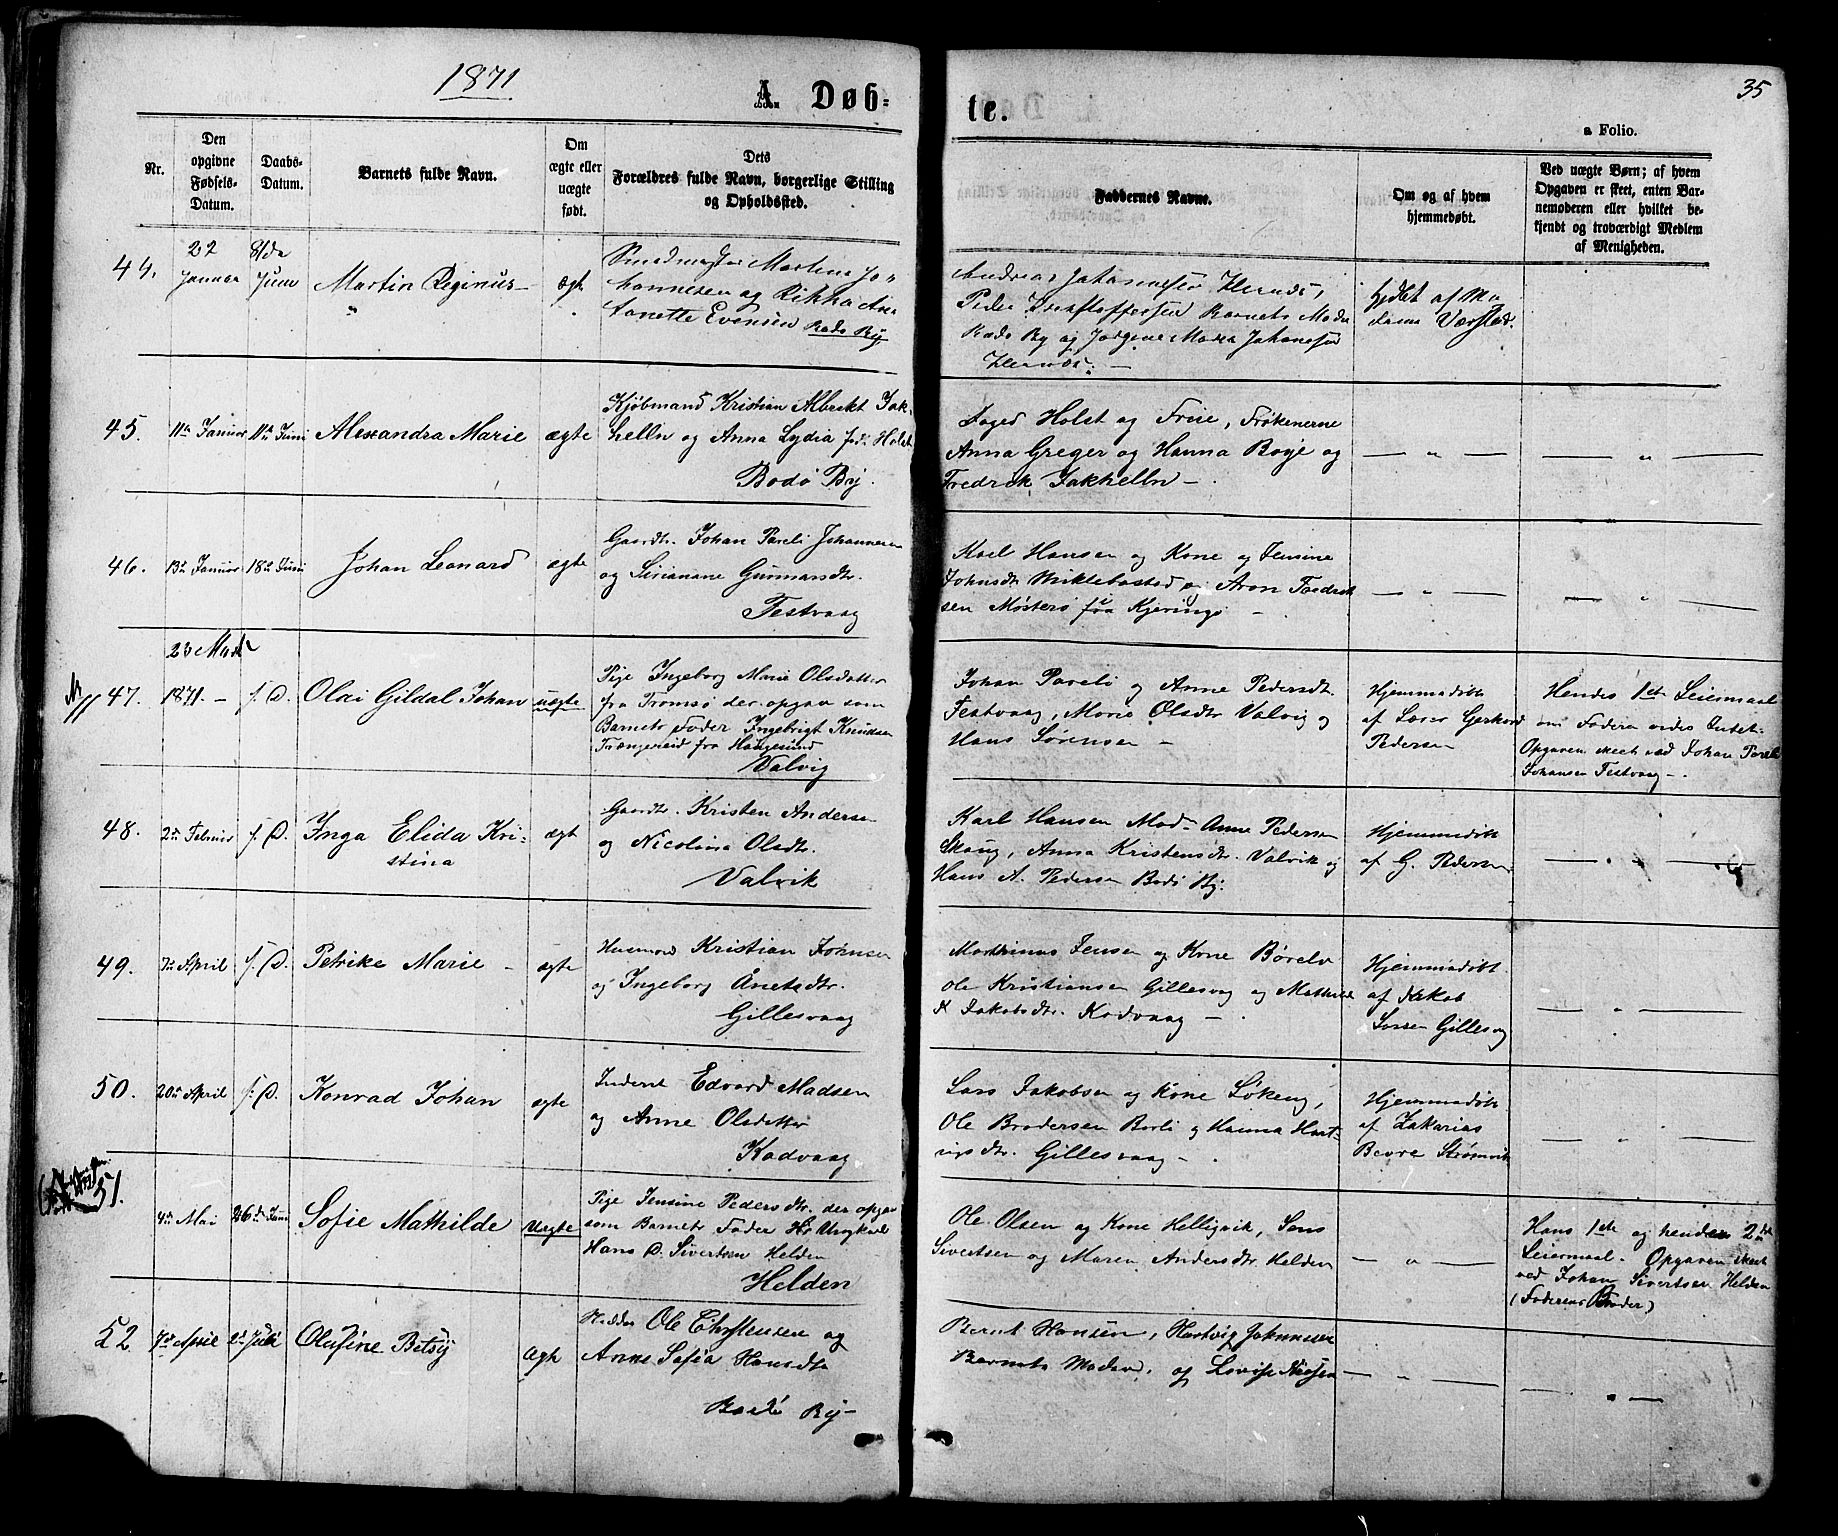 1871
A. Døb-
te.
35
a Folio.
Nr.
Den
opgivne
Fødsels-
Datum.
Daabs-
Datum.
Barnets fulde Navn.
Om
ægte eller
uægte
født.
Dets
Forældres fulde Navn, borgerlige Stilling
og Opholdssted.
Faddernes Navne.
Om og af hvem
hjemmedøbt.
Ved uægte Børn; af hvem
Opgaven er skeet, enten Bar-
nemoderen eller hvilket be-
kjendt og troværdigt Medlem
af Menigheden.
44.
22
Januar
8de
Juni
Martin Reginus
"
ægte
Martinus Jo-
hannesen og Rikka Ane
Tonette Evensen Bodø By
Andreas Johannesen
Peder Kristoffersen Barnets Moder
Bodø By og Jørgine Maria Johanesen
Hjdbt af Ma
dame Værstad.
45.
11te Januar
11te Juni
Alexandra Marie
ægte
Kjøbmand Kristian Albrekt Jak-
helln og Anna Lydia fød: Holst
Bodø By.
Foged Holst og Frue, Frøkenerne
Anna Greger og Hanna Boye og
Fredrik Jakhelln —.
— " —
— " —
46.
13de Januar
18de Juni
Johan Leonard
ægte
Gaardr. Johan Pareli Johannesen
og Sirianane Gunnarsdtr.
Festvaag
Karl Hansen og Kone og Jensine
Johnsdtr Miklebostad og Aron Fredrik
sen Mosterø fra Kjeringø —.
— " —
— " —
47.
23 Marts
1871. —
s. D.
Olai Gildal Johan
uægte
Pige Ingeborg Marie Olsdatter
fra Tromsø der opgav som
Barnets Fader Ingebrigt Knudsen
Trængereid fra Haugesund
Valvig
Johan Pareli og Anne Pedersdtr.
Festvaag, Marie Olsdtr Valvig og
Hans Sørensen —
Hjemmedøbt
af Lærer Gerhard
Pedersen
Hendes 1ste Leiermaal
om Faderen vides Intet.
Opgaven skeet ved Johan Pareli
Johansen Festvaag —.
48.
2den Februar
s. D.
Inga Elida Kri-
stina
ægte
Gaardr. Kristen Andersen
og Nicolina Olsdtr.
Valvik
Karl Hansen Anne Pedersen
Skaug, Anna Kristensdtr. Valvik og
Hans A. Pedersen Bodø By.
Hjemmedøbt
af G. Pedersen
— " —
49.
7de April
s. D.
Petrike Marie —
ægte
Husmand Kristian Johnsen
og Ingeborg Anetsdtr.
Gillesvaag
Marthinus Jensen og Kone Børelv
Ole Kristiansen Gillesvag og Mathilde
K Jakobsdtr. Kodvaag —.
Hjemmedøbt
af Jakob
Larsen Gillesvag
— " —
50.
20de April
s. D.
Konrad Johan
ægte
Inderst Edvard Madsen
og Anne Olsdatter
Kodvaag
Lars Jakobsen og Kone Løkeng,
Ole Brodersen Børli og Hanna Hart-
vigsdtr. Gillesvaag —.
Hjemmedøbt
af Zakarias
Bevre Strømvik
— " —
51.
4de Mai
26de Juni
Sofie Mathilde
Uægte
Pige Jensine Pedersdtr. der opgav
som Barnets Fader Ungkarl
Hans D. Sivertsen Helden
Helden
Ole Olsen og Kone Helligvik, Lars
Sivertsen og Maren Andersdtr. Helden
— " —
Hans 1ste og hendes 2det
Leiermaal. Opgaven skeet
ved Johan Sivertsen Helden
(Faderens Broder)
52
7de April
2den Juli
Olufine Betsy
ægte
Ole Christensen og
Anne Sofia Hansdtr
Bodø By —
Bernt Hansen, Hartvig Johannesen
Barnets Moder, og Lovise Nielsen
— " —
— " —